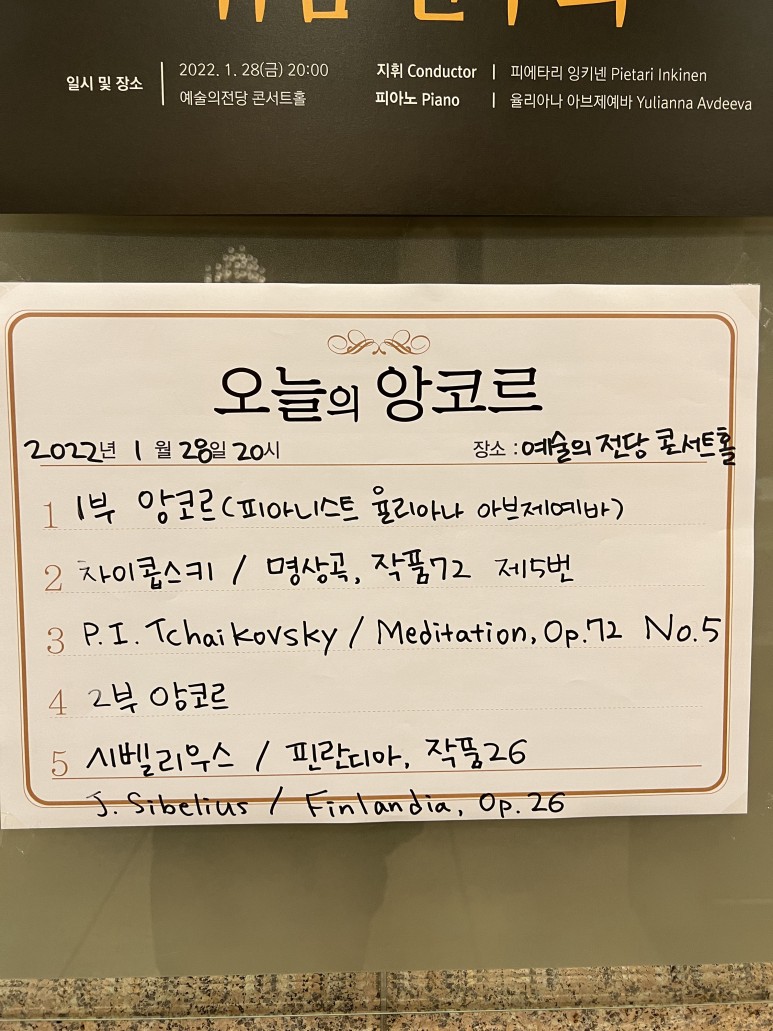 일시 및 장소
2022. 1. 28(금) 20:00
예술의전당 콘서트홀
지휘 Conductor | 피에타리 잉키넨 Pietari Inkinen
피아노 Piano | 율리아나 아브제예바 Yulianna Avdeeva
오늘의 앙코르
2022년 1월 28일 20시 장소 : 예술의 전당 콘서트홀
1 1부 앙코르(피아니스트 율리아나 아브제예바)
2 차이콥스키 / 명상곡, 작품72 제5번
3 P.I. Tchaikovsky / Meditation, Op.72 No.5
4 2부 앙코르
5 시벨리우스 / 핀란디아, 작품26
J. Sibelius / Finlandia, Op. 26